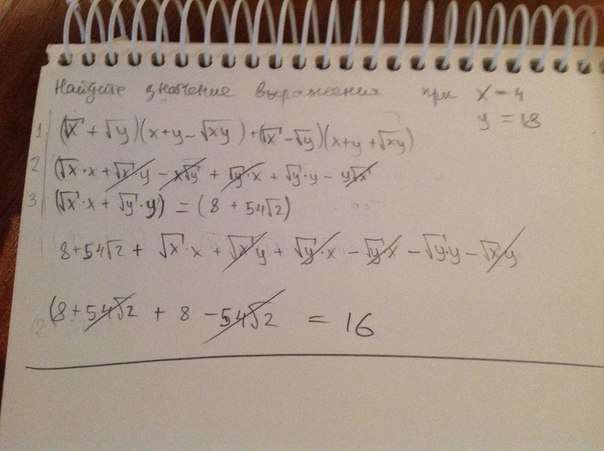 Найдите значение выражения при x = 4
y = 18
1. (√x + √y)(x+y-√xy) + (√x - √y)(x+y+√xy)
2 (√x·x + √x·y - x√y + √y·x + √y·y - y√x
3. (√x·x + √y·y) = (8 + 54√2)
8+54√2 + √x·x + √x·y + √y·x - √y·x - √y·y - √x·y
(8+54√2 + 8 - 54√2 = 16